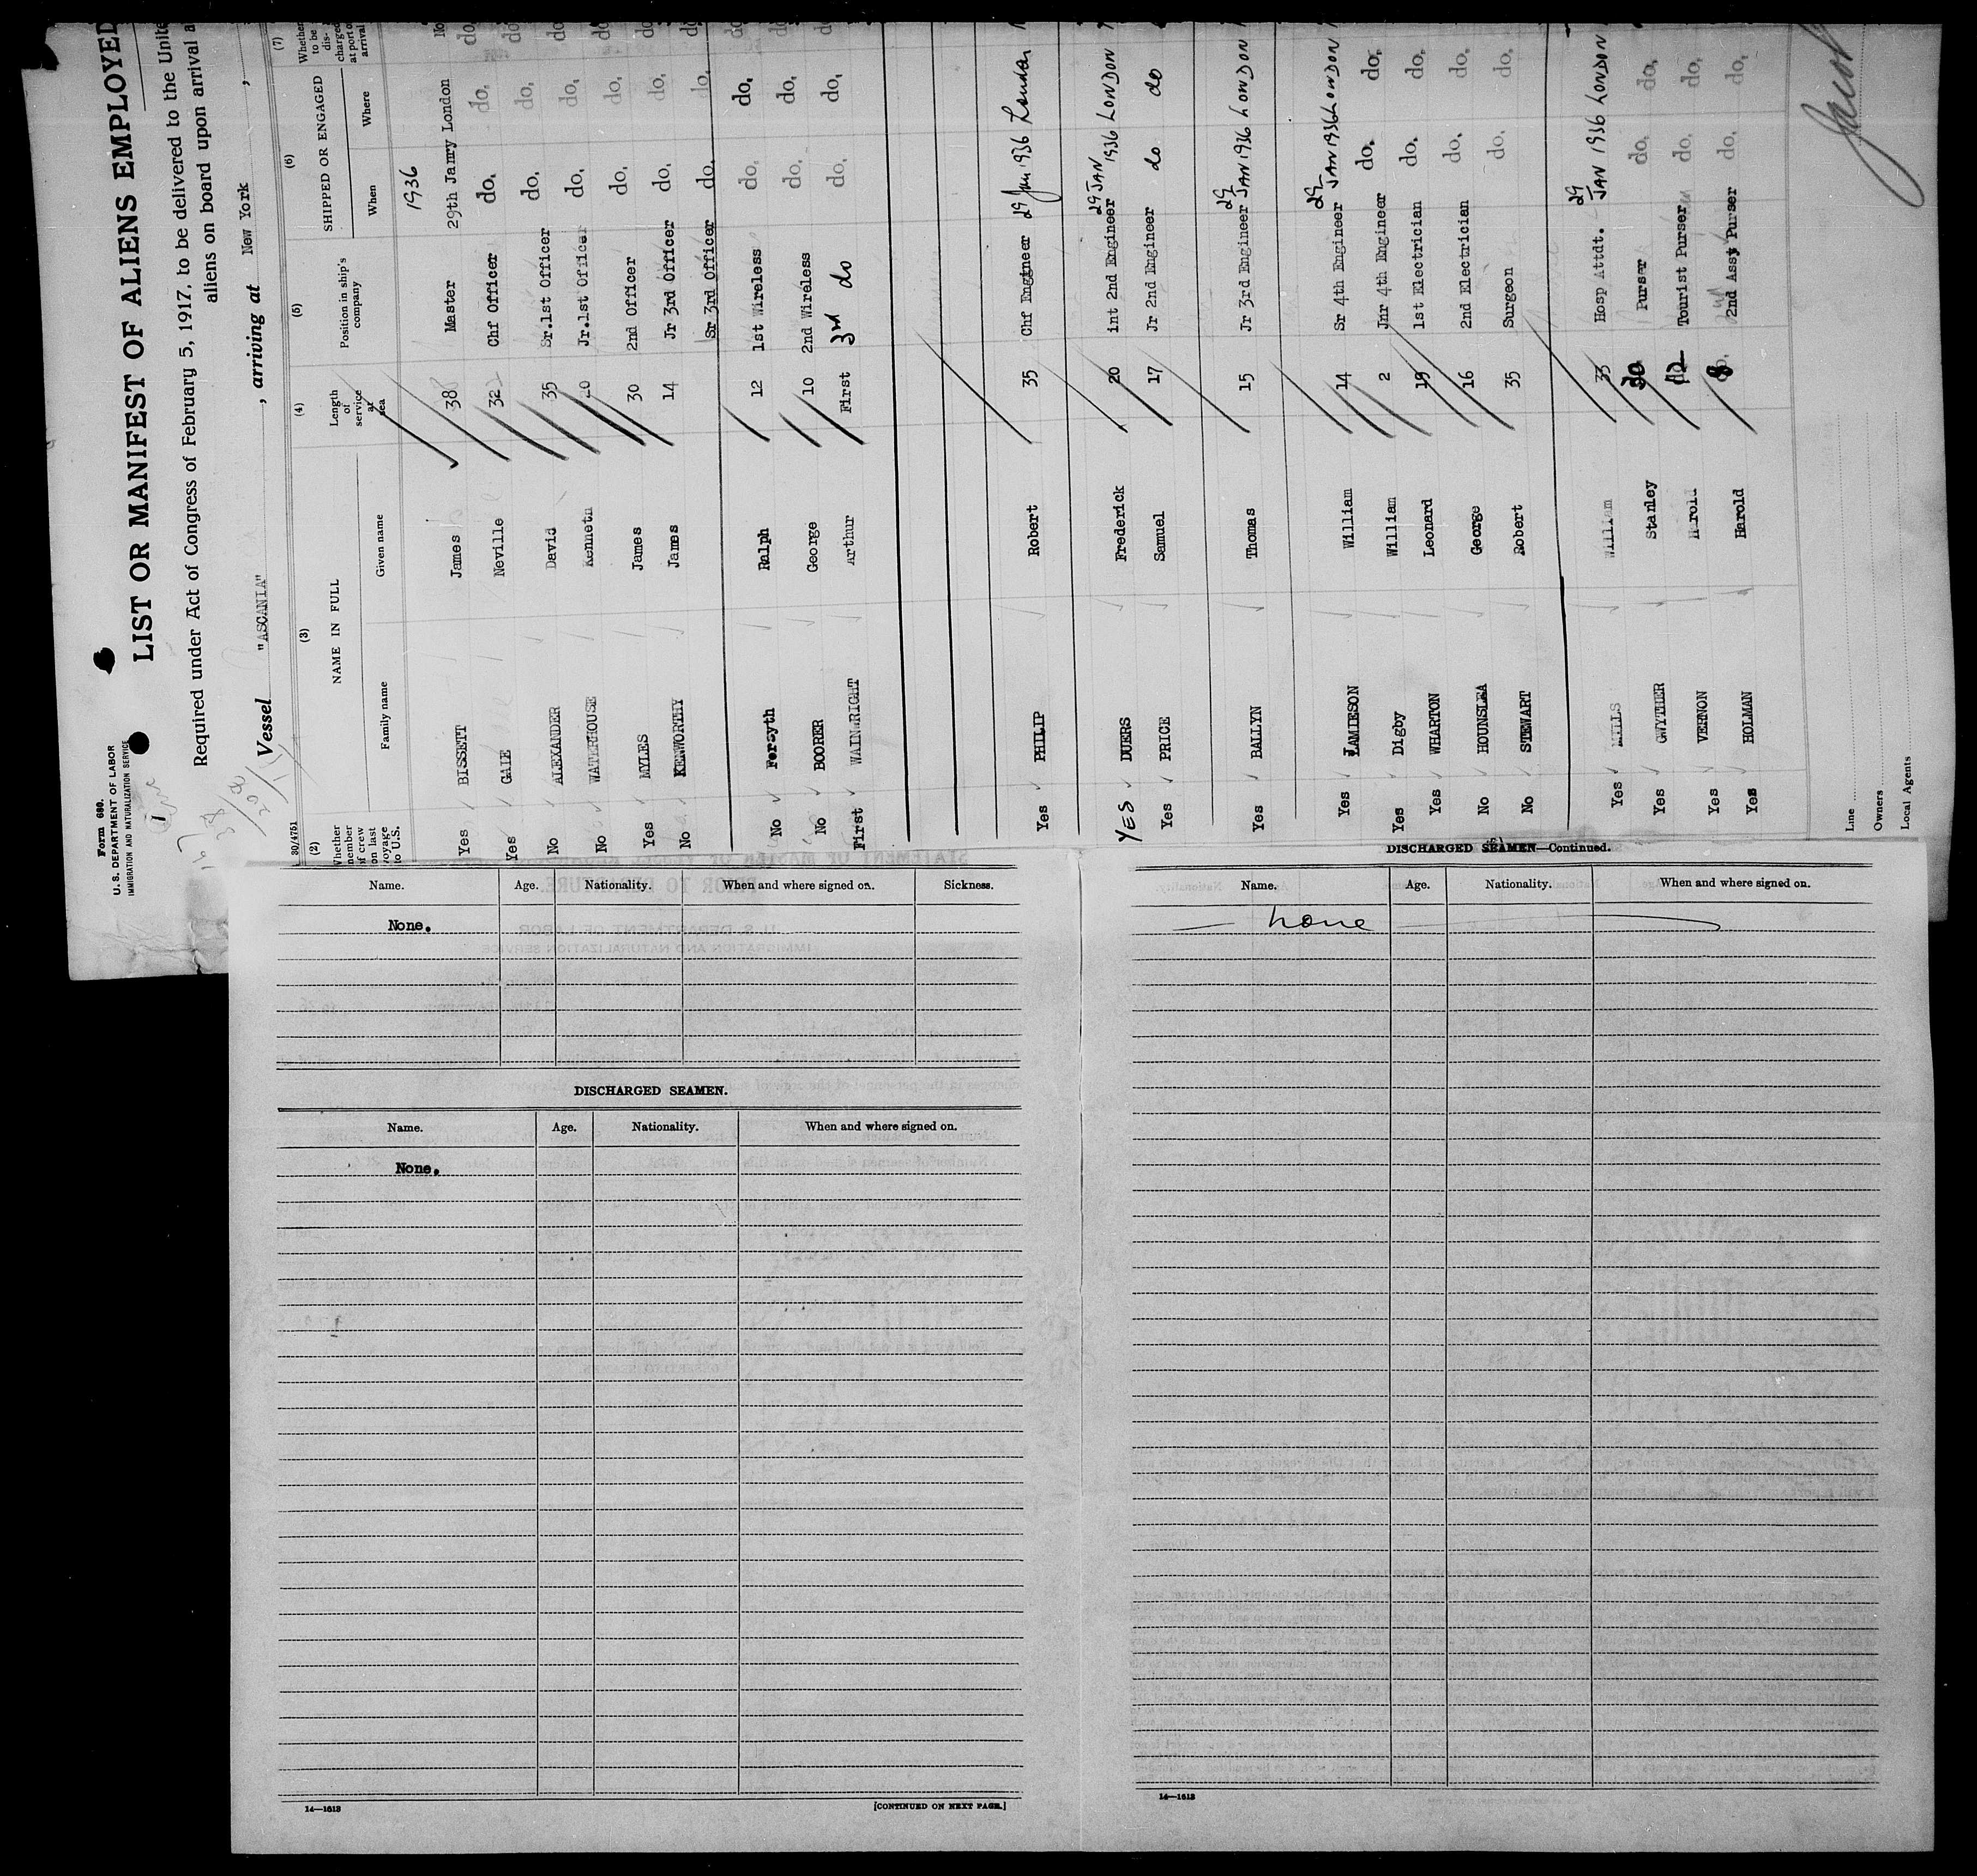 Form 680.
U. S. DEPARTMENT OF LABOR
IMMIGRATION AND NATURALIZATION SERVICE
LIST OR MANIFEST OF ALIENS EMPLOYED
Required under Act of Congress of February 5, 1917, to be delivered to the Unite
aliens on board upon arrival a
Vessel "ASCANIA" , arriving at New York ,
30/4751
(2) (3) (4) (5) (6) (7)
Whether member of crew on last voyage to U.S. NAME IN FULL Length of service at sea Position in ship's company SHIPPED OR ENGAGED Whether to be discharged at port of arrival
Family name Given name When Where
1936
Yes BISSETT James 38 Master 29th Janry London No
Yes GALE Neville 32 Chf Officer do. do. do
No ALEXANDER David 35 Sr.1st Officer do. do. do
No WATERHOUSE Kenneth 20 Jr.1st Officer do. do. do
Yes MYLES James 30 2nd Officer do. do. do
No KENWORTHY James 14 Jr 3rd Officer do. do. do
Sr 3rd Officer do. do. do
No Forsyth Ralph 12 1st Wireless do. do. do
No BOORER George 10 2nd Wireless do. do. do
First WAINWRIGHT Arthur First 3rd do do. do. do
Yes PHILIP Robert 35 Chf Engineer 29 Jan 1936 London
YES DUERS Frederick 20 int 2nd Engineer 29 JAN 1936 LONDON
Yes PRICE Samuel 17 Jr 2nd Engineer do do
Yes BALLYN Thomas 15 Jr 3rd Engineer 29 JAN 1936 LONDON
Yes JAMIESON William 14 Sr 4th Engineer 29 JAN 1936 LONDON
Yes Digby William 2 Jnr 4th Engineer do. do.
Yes WHARTON Leonard 15 1st Electrician do. do.
No HOUNSLEA George 16 2nd Electrician do. do.
No STEWART Robert 35 Surgeon do. do.
Yes MILLS William 33 Hosp Attdt. 29 JAN 1936 LONDON
Yes GWYTHER Stanley 30 Purser do. do.
Yes VERNON Harold 12 Tourist Purser do. do.
Yes HOLMAN Harold 8 2nd Asst Purser do. do.
Line
Owners
Local Agents
Name. Age. Nationality. When and where signed on. Sickness.
None.
DISCHARGED SEAMEN.
Name. Age. Nationality. When and where signed on.
None.
14—1613 [CONTINUED ON NEXT PAGE.]
DISCHARGED SEAMEN—Continued.
Name. Age. Nationality. When and where signed on.
None
14—1613